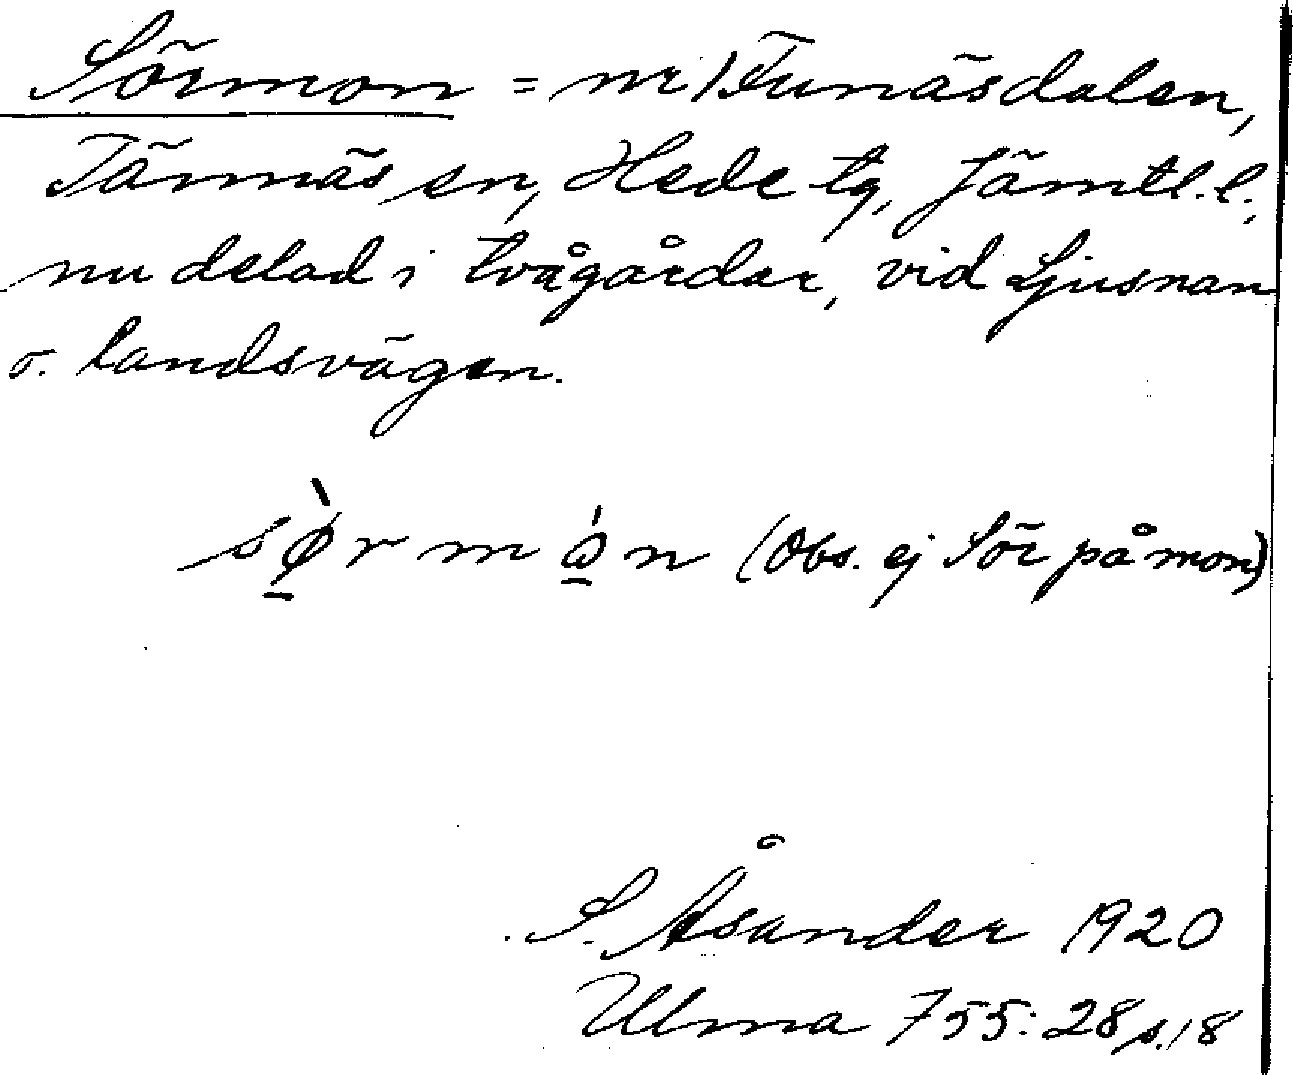 Sörmon = nr 1 Funäsdalen,
Tännäs sn, Hede tg, Jämtl. l.,
nu delad i två gårdar, vid Ljusnan
o. landsvägen.
sø̀rmòn (Obs. ej Sör på mon)
S. Åsander 1920
Ulma 755:28 s. 18